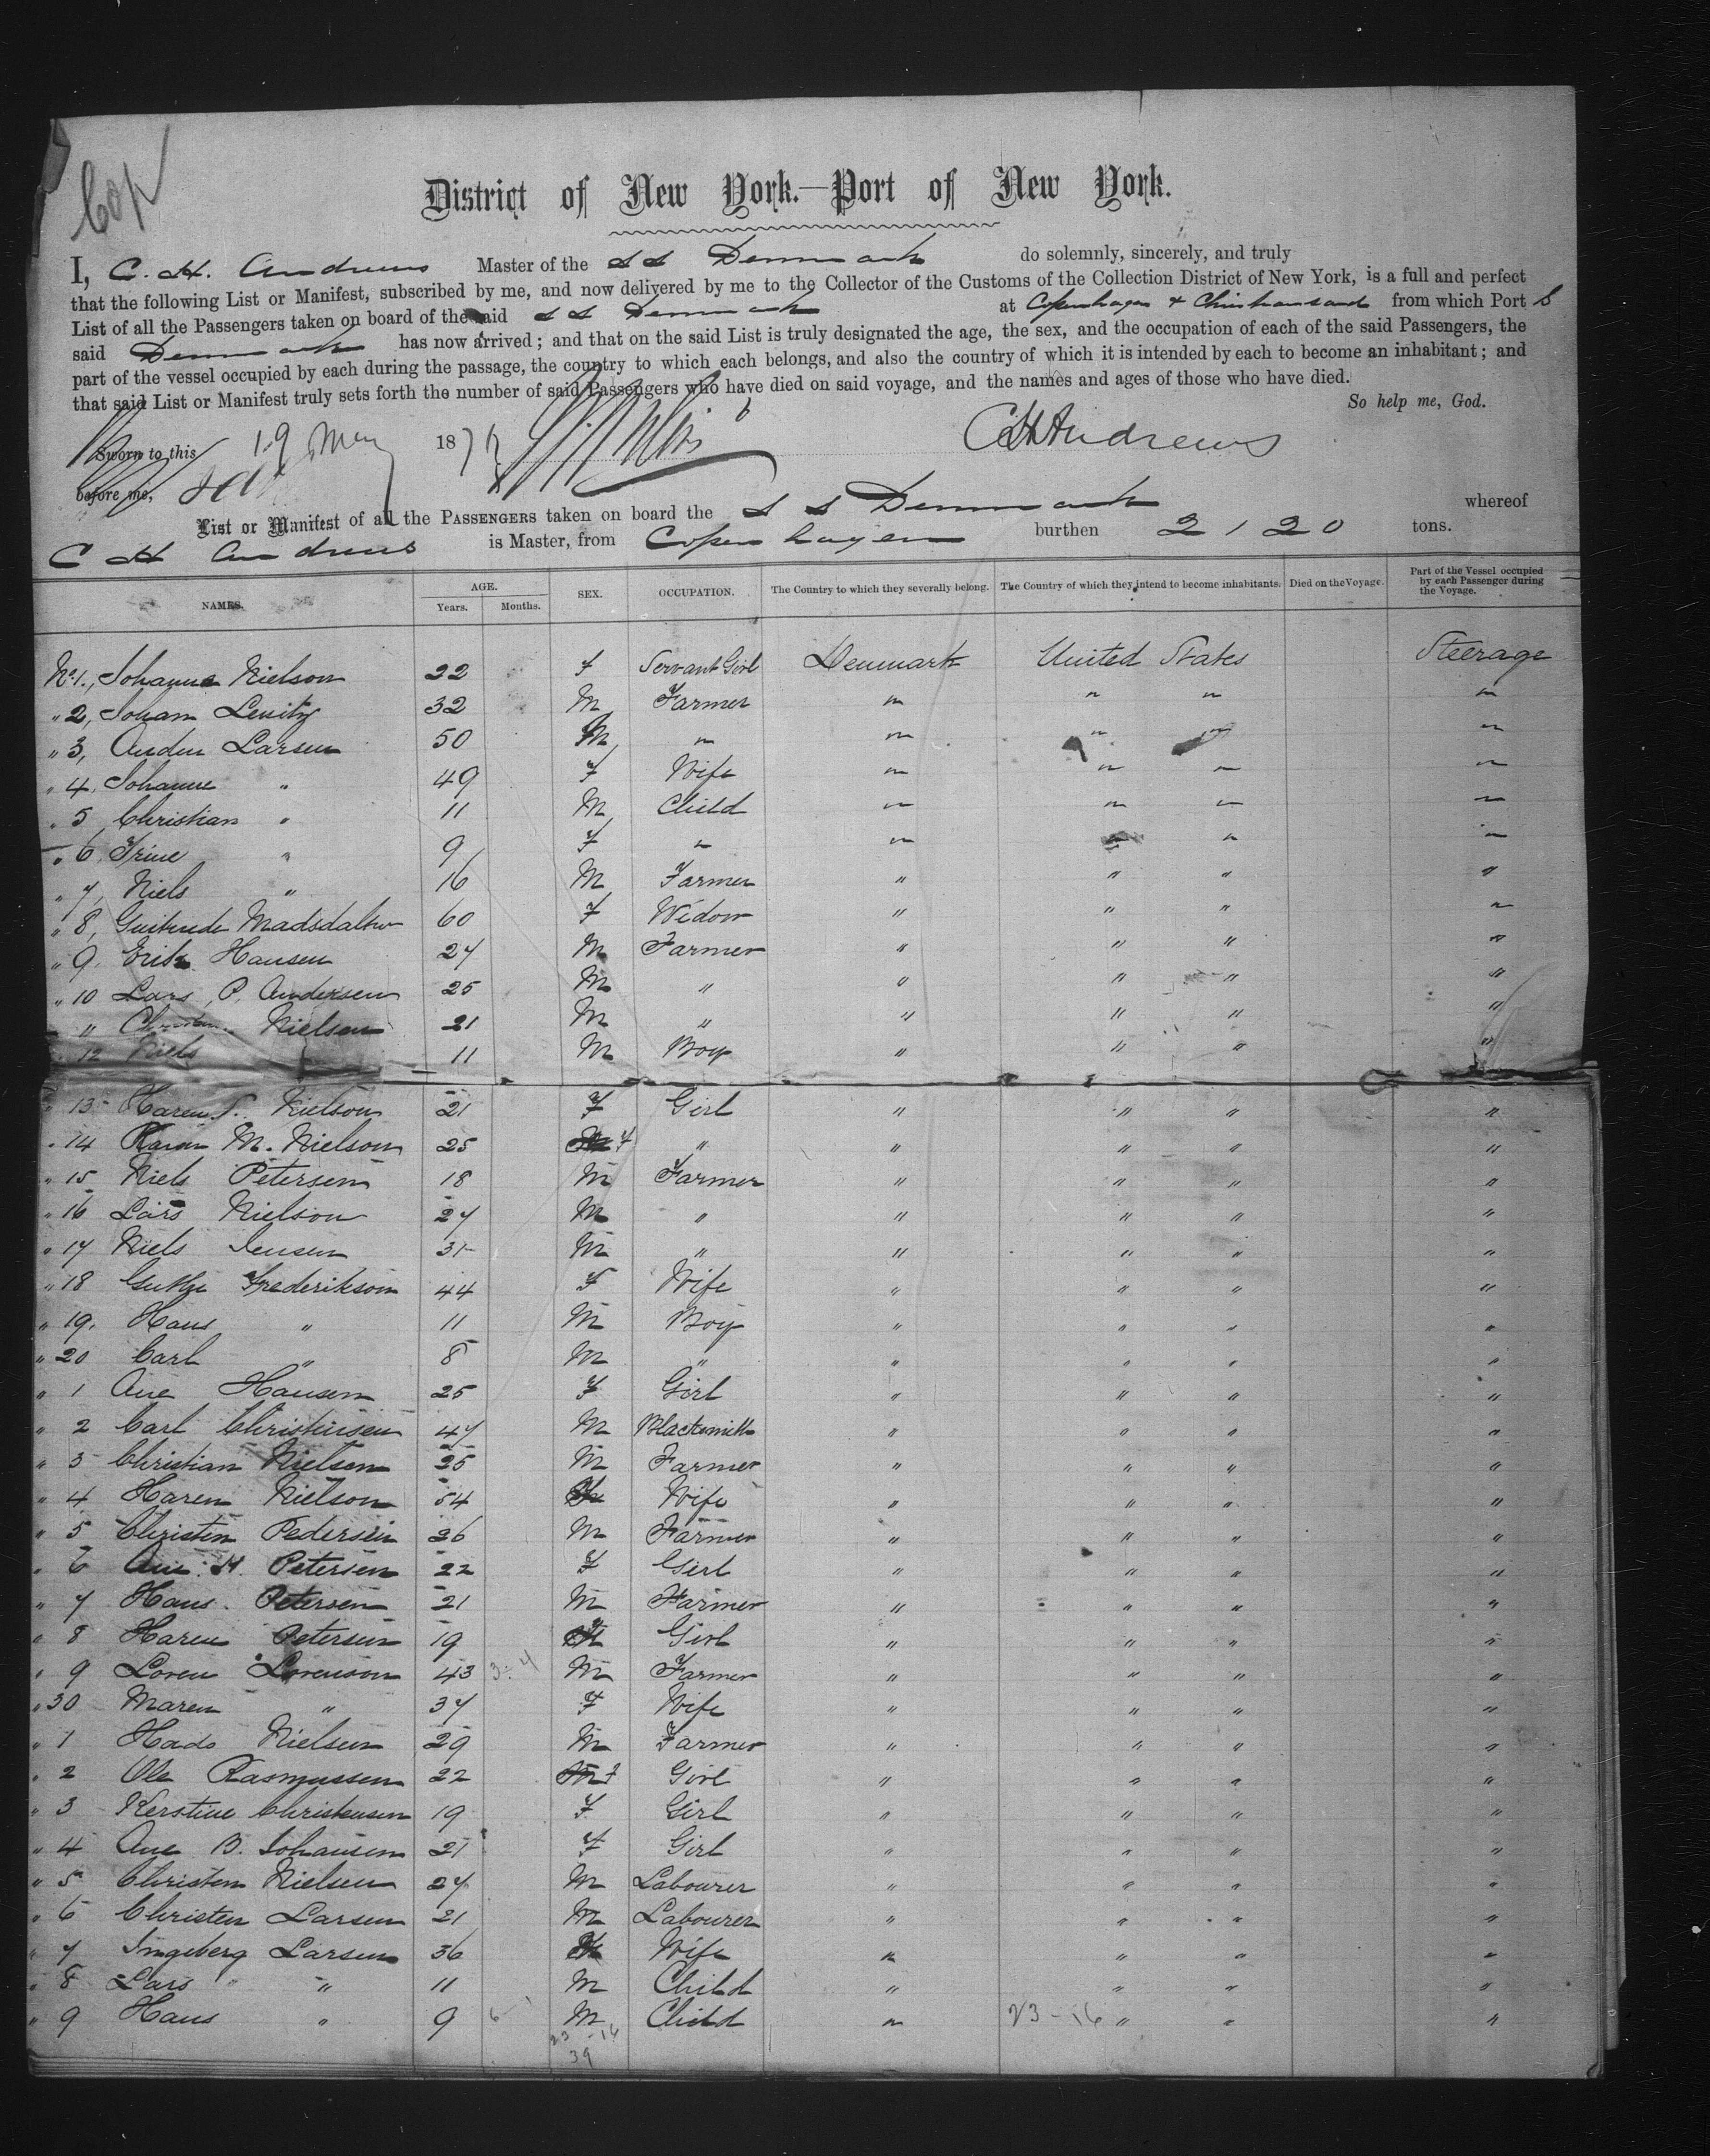 Cop
District of New York.—Port of New York.
I, C. H. Andrews Master of the S S Denmark do solemnly, sincerely, and truly
that the following List or Manifest, subscribed by me, and now delivered by me to the Collector of the Customs of the Collection District of New York, is a full and perfect
List of all the Passengers taken on board of the said S S Denmark at Copenhagen & Christiansand from which Port
said Denmark has now arrived; and that on the said List is truly designated the age, the sex, and the occupation of each of the said Passengers, the
part of the vessel occupied by each during the passage, the country to which each belongs, and also the country of which it is intended by each to become an inhabitant; and
that said List or Manifest truly sets forth the number of said Passengers who have died on said voyage, and the names and ages of those who have died.
So help me, God.
Sworn to this 19 May 187 CHAndrews
before me,
List or Manifest of all the PASSENGERS taken on board the S S Denmark whereof
C H Andrews is Master, from Copenhagen burthen 2120 tons.
NAMES. AGE. Years. Months. SEX. OCCUPATION. The Country to which they severally belong. The Country of which they intend to become inhabitants. Died on the Voyage. Part of the Vessel occupied by each Passenger during the Voyage.
No 1., Johanne Nielson 22 F Servant Girl Denmark United States Steerage
" 2, Johan 32 M Farmer " " " "
" 3, Larsen 50 M " " " " "
" 4, Johanne " 49 F Wife " " " "
" 5 Christian " 11 M Child " " " "
" 6, Trine " 9 F " " " " "
" 7, Niels " 16 M Farmer " " " "
" 8, 60 F Widow " " " "
" 9. Erik Hansen 27 M Farmer " " " "
" 10 Lars P. Andersen 25 M " " " " "
" 11 Nielsen 21 M " " " " "
" 12 Niels 11 M Boy " " " "
" 13 Karen Nielson 21 F Girl " " " "
" 14 Karen M. Nielson 25 F " " " " "
" 15 Niels Petersen 18 M Farmer " " " "
" 16 Lars Nielson 27 M " " " " "
" 17 Niels Jensen 31 M " " " " "
" 18 Frederikson 44 F Wife " " " "
" 19. Hans " 11 M Boy " " " "
" 20 Carl " 8 M " " " " "
" 1 Ane Hansen 25 F Girl " " " "
" 2 Carl Christensen 47 M Blacksmith " " " "
" 3 Christian Nielsen 25 M Farmer " " " "
" 4 Karen Nielson 54 F Wife " " " "
" 5 Christen Pedersen 26 M Farmer " " " "
" 6 Ane H. Petersen 22 F Girl " " " "
" 7 Hans Petersen 21 M Farmer " " " "
" 8 Karen Petersen 19 F Girl " " " "
" 9 Loren Lorenson 43 M Farmer " " " "
" 30 Maren " 37 F Wife " " " "
" 1 Nielsen 29 M Farmer " " " "
" 2 Ole Rasmussen 22 F Girl " " " "
" 3 Kerstine Christensen 19 F Girl " " " "
" 4 Ane B. Johansen 21 F Girl " " " "
" 5 Christen Nielsen 27 M Labourer " " " "
" 6 Christen Larsen 21 M Labourer " " " "
" 7 Ingeberg Larsen 36 F Wife " " " "
" 8 Lars " 11 M Child " " " "
" 9 Hans " 9 M Child " 23-16 " " "
23-16
39